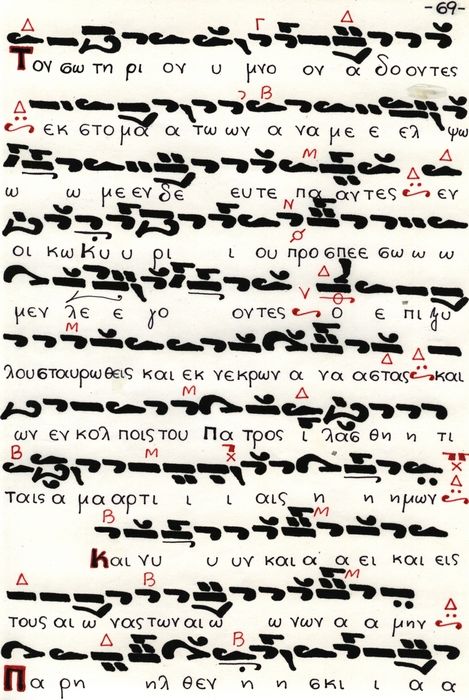 -69-
Τον σω τη ρι ον υ μνο ον α δο οντες
εκ στο μα α τω ων α να με ε ελ ψω
ω ω με εν δε ευ τε πα αντες εν
οι κω Κυ υ ρι ι ου προ σπεε σω ω ω
μεν λε ε γο οντες ο ε πι ξυ
λου σταυρωθεις και εκ νεκρων α να αστας και
ων εν κολ ποις του Πα τρος ι λασ θη η τι
ταις α μα αρτι ι ι αις η η ημων
Και νυ υ υν και α α ει και εις
τους αι ω νας των αι ω ω νων α α μην
Πα ρη ηλ θεν η η σκι ι α α